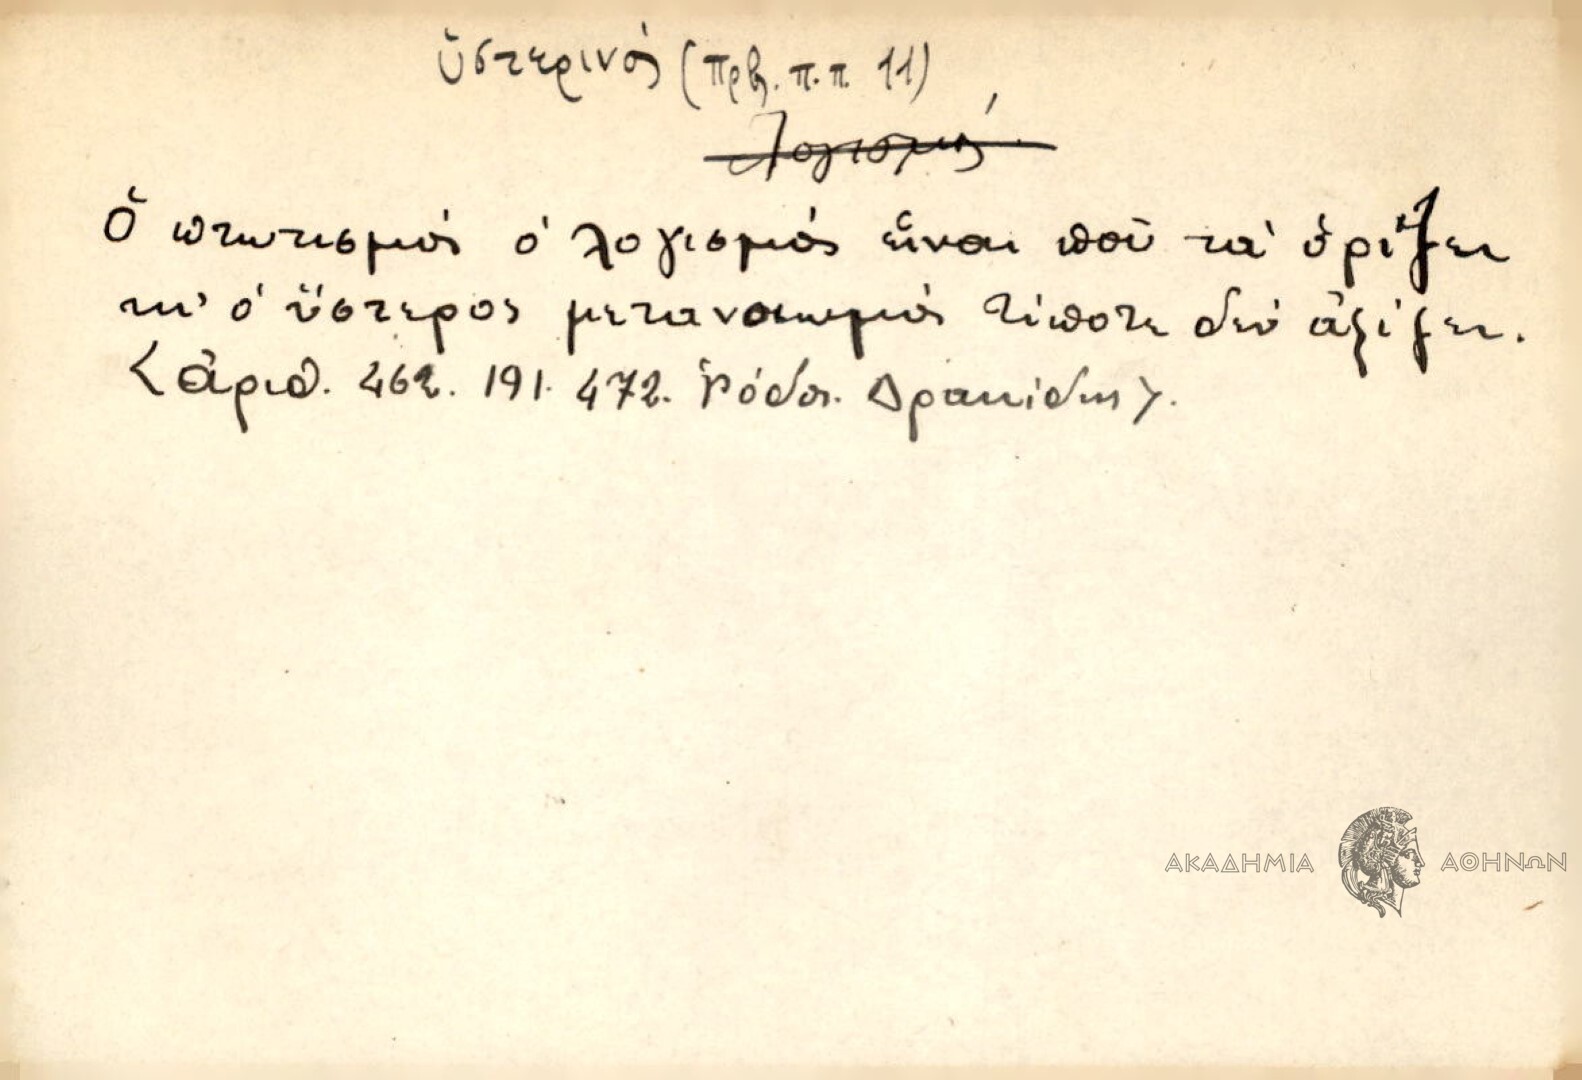 ὑστερινός (Πρβ. π.π. 11)
Λογισμός
Ὁ πρωτισμός ὁ λογισμός εἶναι ποῦ τὰ ὁρίζει
κι' ὁ ὕστερος μετανοιωμός τίποτε δεν ἀξίζει.
<ἀριθ. 462. 191. 472. Ῥόδος. Δρακίδης>.
ΑΚΑΔΗΜΙΑ ΑΘΗΝΩΝ